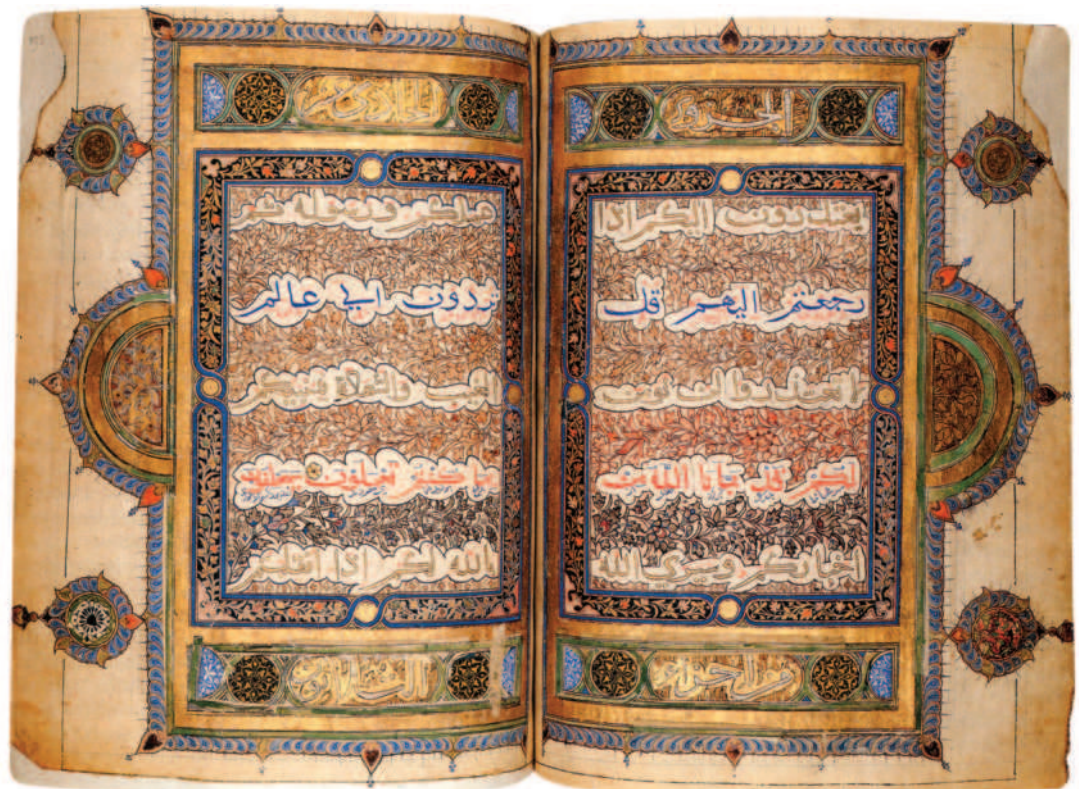 الجزو
يعتذرون اليكم اذا
رجعتم اليهم قل
لا تعتذروا لن نومن
لكم قد نبانا الله من
اخباركم وسيرى الله
من اجزاء
الحادي عشر
عملكم ورسوله ثم
تردون الى عالم
الغيب والشهادة فينبئكم
بما كنتم تعملون سيحلفون
بالله لكم اذا انقلبتم
الثلاثين